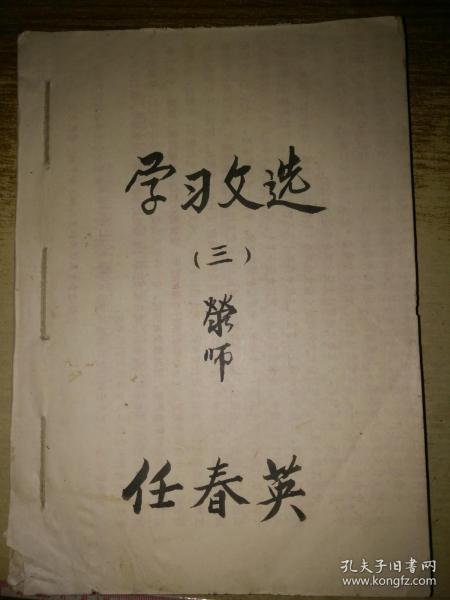 学习文选
（三）
荥师
任春英
孔夫子旧书网
www.kongfz.com